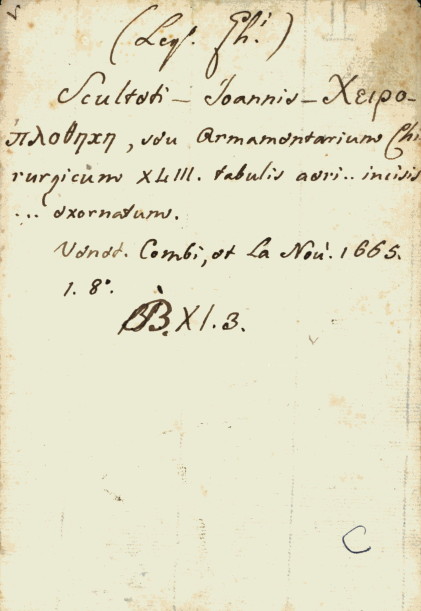 (Leg. Ghi.)
Sculteti - Joannis - Χειρο-
πλοθηχη, seu Armamentarium Chi
rurgicum XLIII. tabulis aeri.. incisis
... exornatum.
Venet. Combi, et La Nou. 1665.
1. 8°.
BB. XI. 3.
C